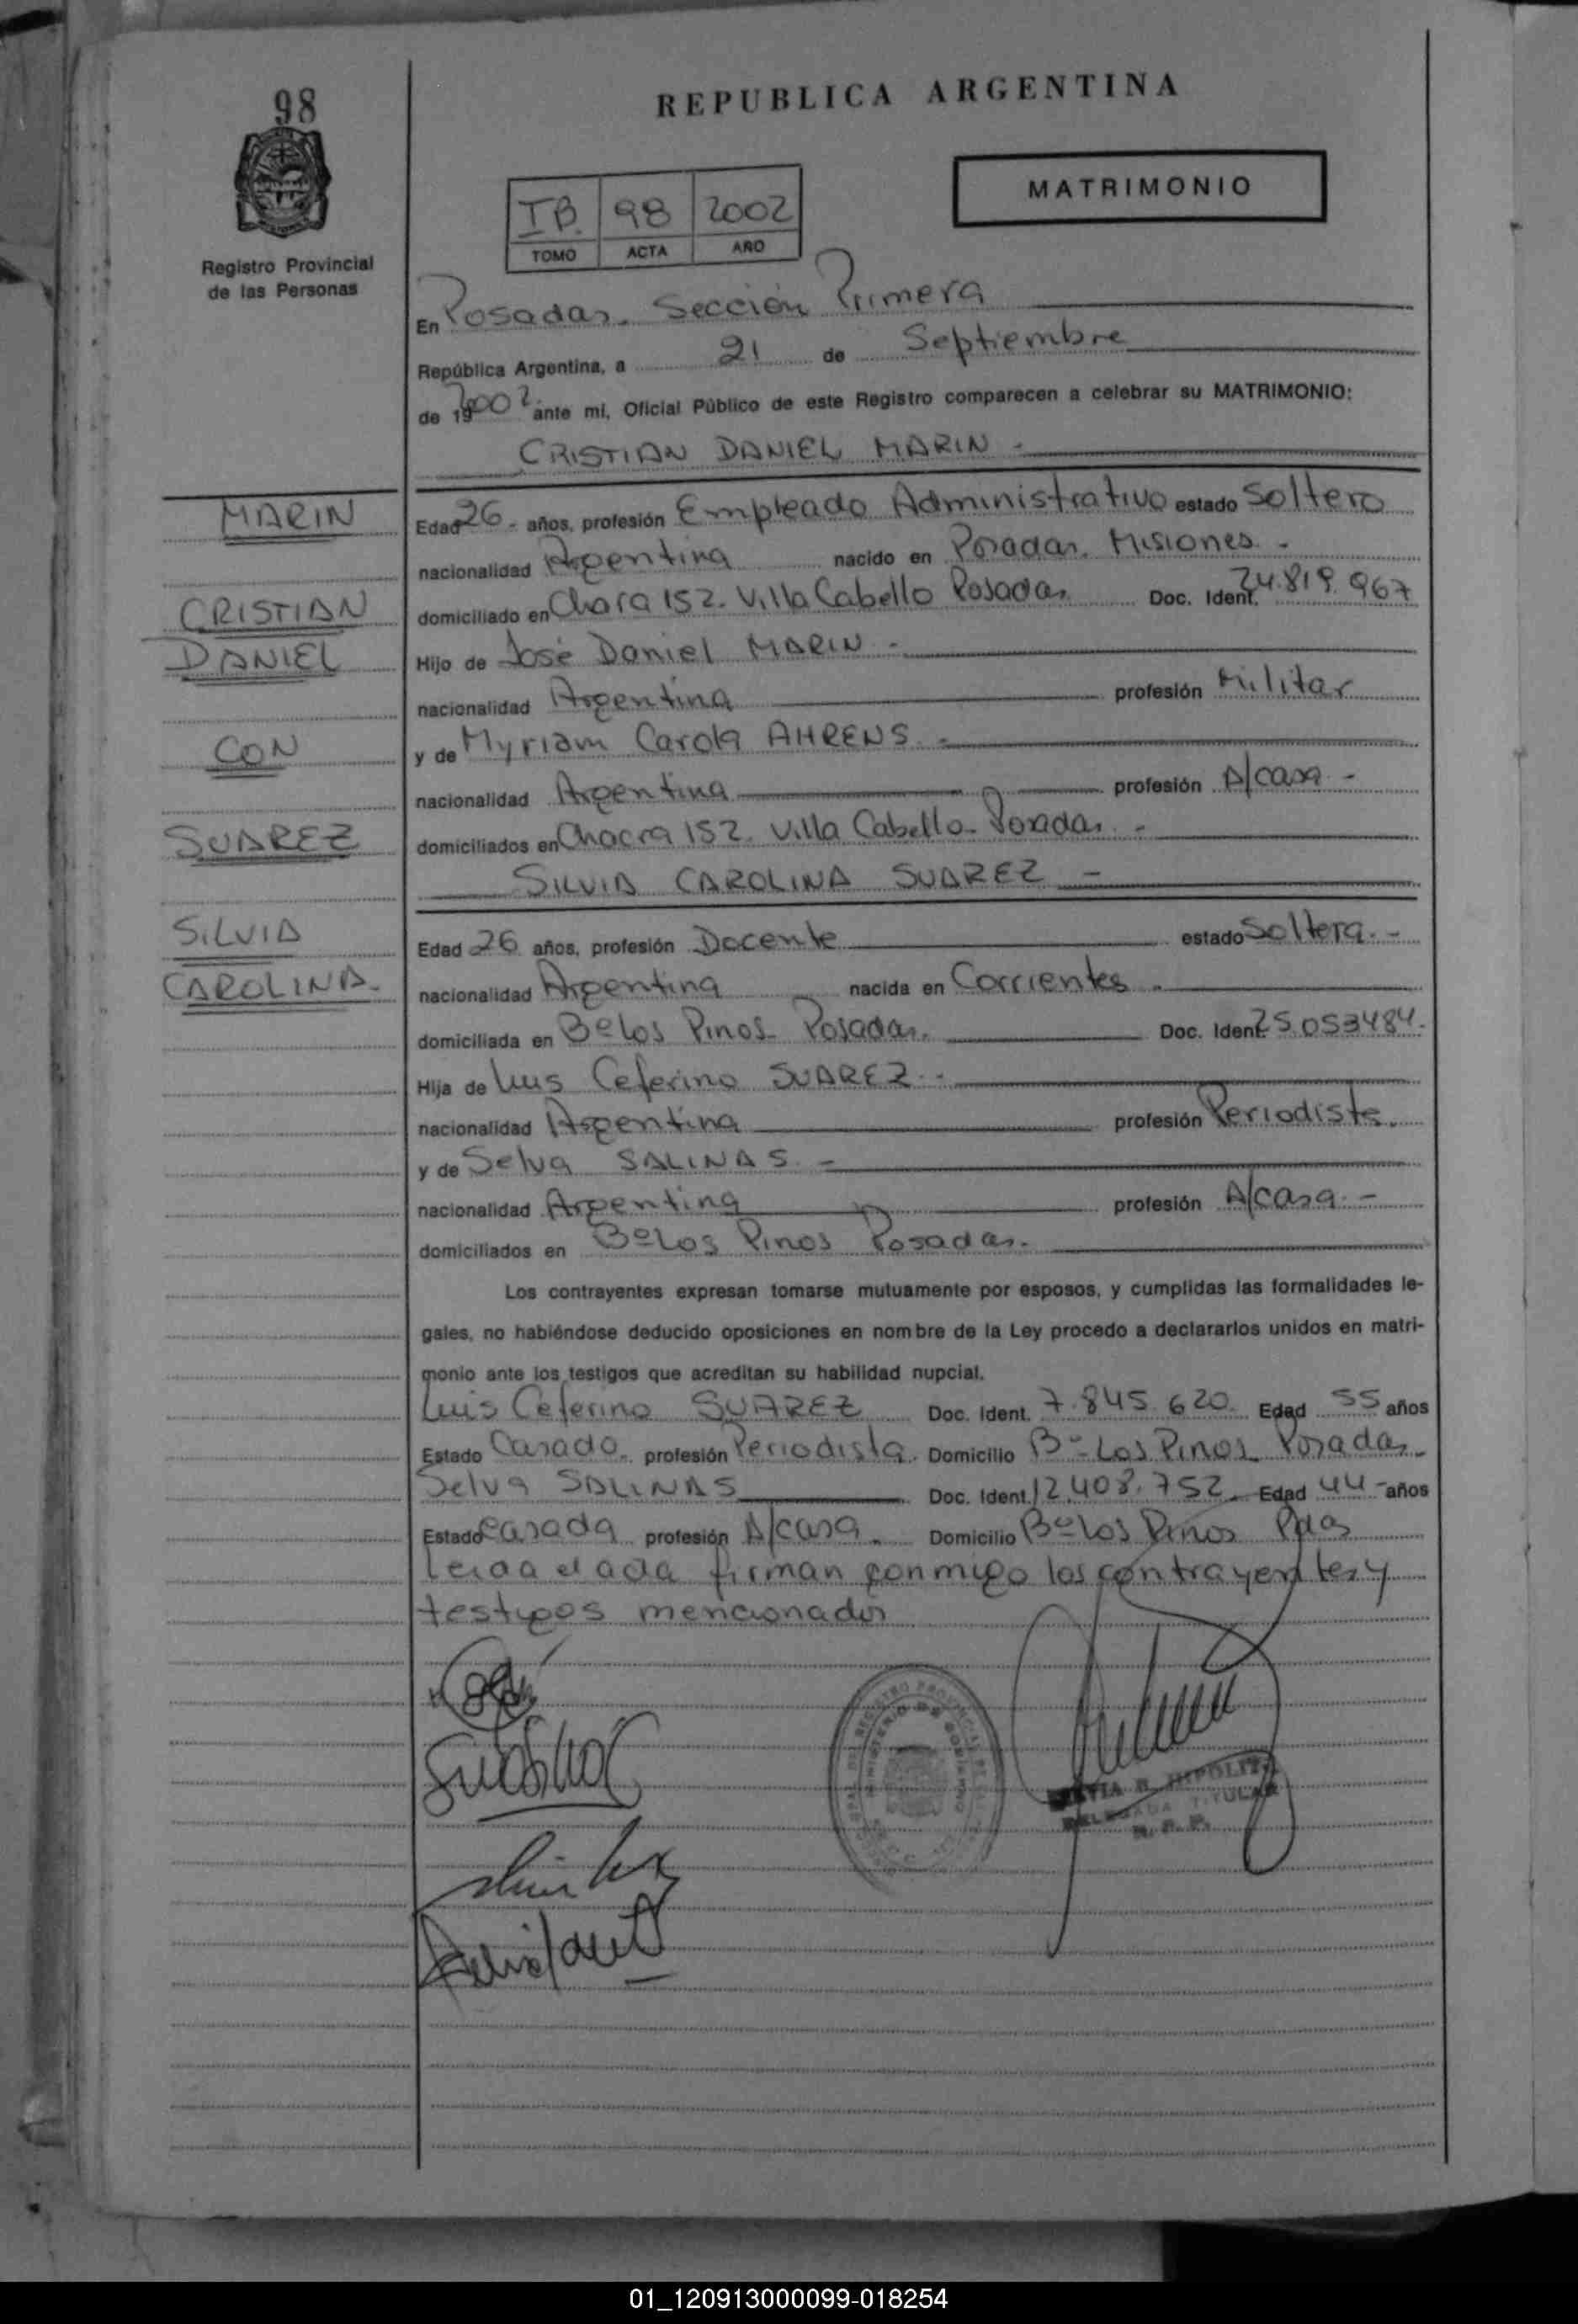 98
Registro Provincial
de las Personas
REPUBLICA ARGENTINA
MATRIMONIO
IB. 98 2002
TOMO ACTA AÑO
En Posadas. Sección Primera
República Argentina, a 21 de Septiembre
de 19 2002 ante mí, Oficial Público de este Registro comparecen a celebrar su MATRIMONIO:
CRISTIAN DANIEL MARIN -
MARIN
CRISTIAN
DANIEL
CON
SUAREZ
SILVIA
CAROLINA.
Edad 26- años, profesión Empleado Administrativo estado Soltero
nacionalidad Argentina nacido en Posadas. Misiones -
domiciliado en Chara 152. Villa Cabello Posadas Doc. Ident. 24.819.967
Hijo de José Daniel MARIN -
nacionalidad Argentina profesión Militar
y de Myriam Carola AHRENS. -
nacionalidad Argentina profesión A/casa -
domiciliados en Chacra 152. Villa Cabello- Posadas. -
SILVIA CAROLINA SUAREZ -
Edad 26 años, profesión Docente estado Soltera. -
nacionalidad Argentina nacida en Corrientes.
domiciliada en Bº Los Pinos- Posadas. Doc. Ident. 25.053484.
Hija de Luis Ceferino SUAREZ -
nacionalidad Argentina profesión Periodista.
y de Selva SALINAS. -
nacionalidad Argentina profesión A/casa. -
domiciliados en Bº Los Pinos Posadas.
Los contrayentes expresan tomarse mutuamente por esposos, y cumplidas las formalidades le-
gales, no habiéndose deducido oposiciones en nombre de la Ley procedo a declararlos unidos en matri-
monio ante los testigos que acreditan su habilidad nupcial.
Luis Ceferino SUAREZ Doc. Ident. 7.845.620. Edad 55 años
Estado Casado. profesión Periodista. Domicilio Bº Los Pinos Posadas.
Selva SALINAS Doc. Ident. 12.408.752 Edad 44- años
Estado Casada profesión A/casa. Domicilio Bº Los Pinos Pdas
Leida el acta firman conmigo los contrayentes y
testigos mencionados
HIPOLITO
DELEGADA TITULAR
R. P. P.
01_120913000099-018254